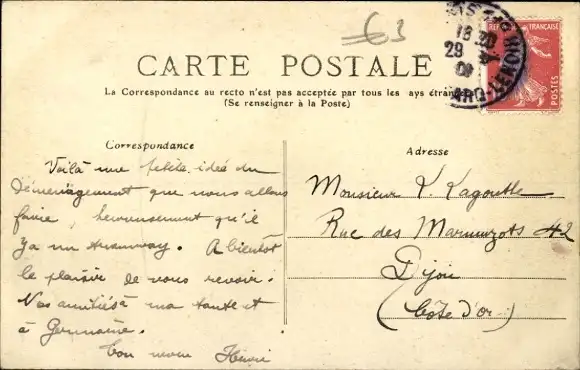 63
CARTE POSTALE
La Correspondance au recto n'est pas acceptée par tous les ays étrange
(Se renseigner à la Poste)
18 30
29
09
POSTES
Correspondance
Voilà une petite idée du
déménagement que nous allons
faire, heureusement qu'il
ya un tramway. A bientôt
le plaisir de vous revoir.
Nos amitiés à ma tante et
à Germaine.
Henri
Adresse
Monsieur
Rue des Marmuzots 42
Dijon
(Côte d'or)